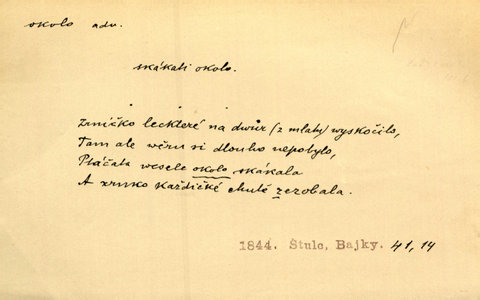 okolo adv.
skákati okolo.
Zrníčko leckteré na dwůr (z mlatu) wyskočilo,
Tam ale wěru si dlouho nepobylo,
Ptáčata wesele okolo skákala
A zrnko každičké chutě zezobala.
1844. Štulc, Bajky. 41, 14